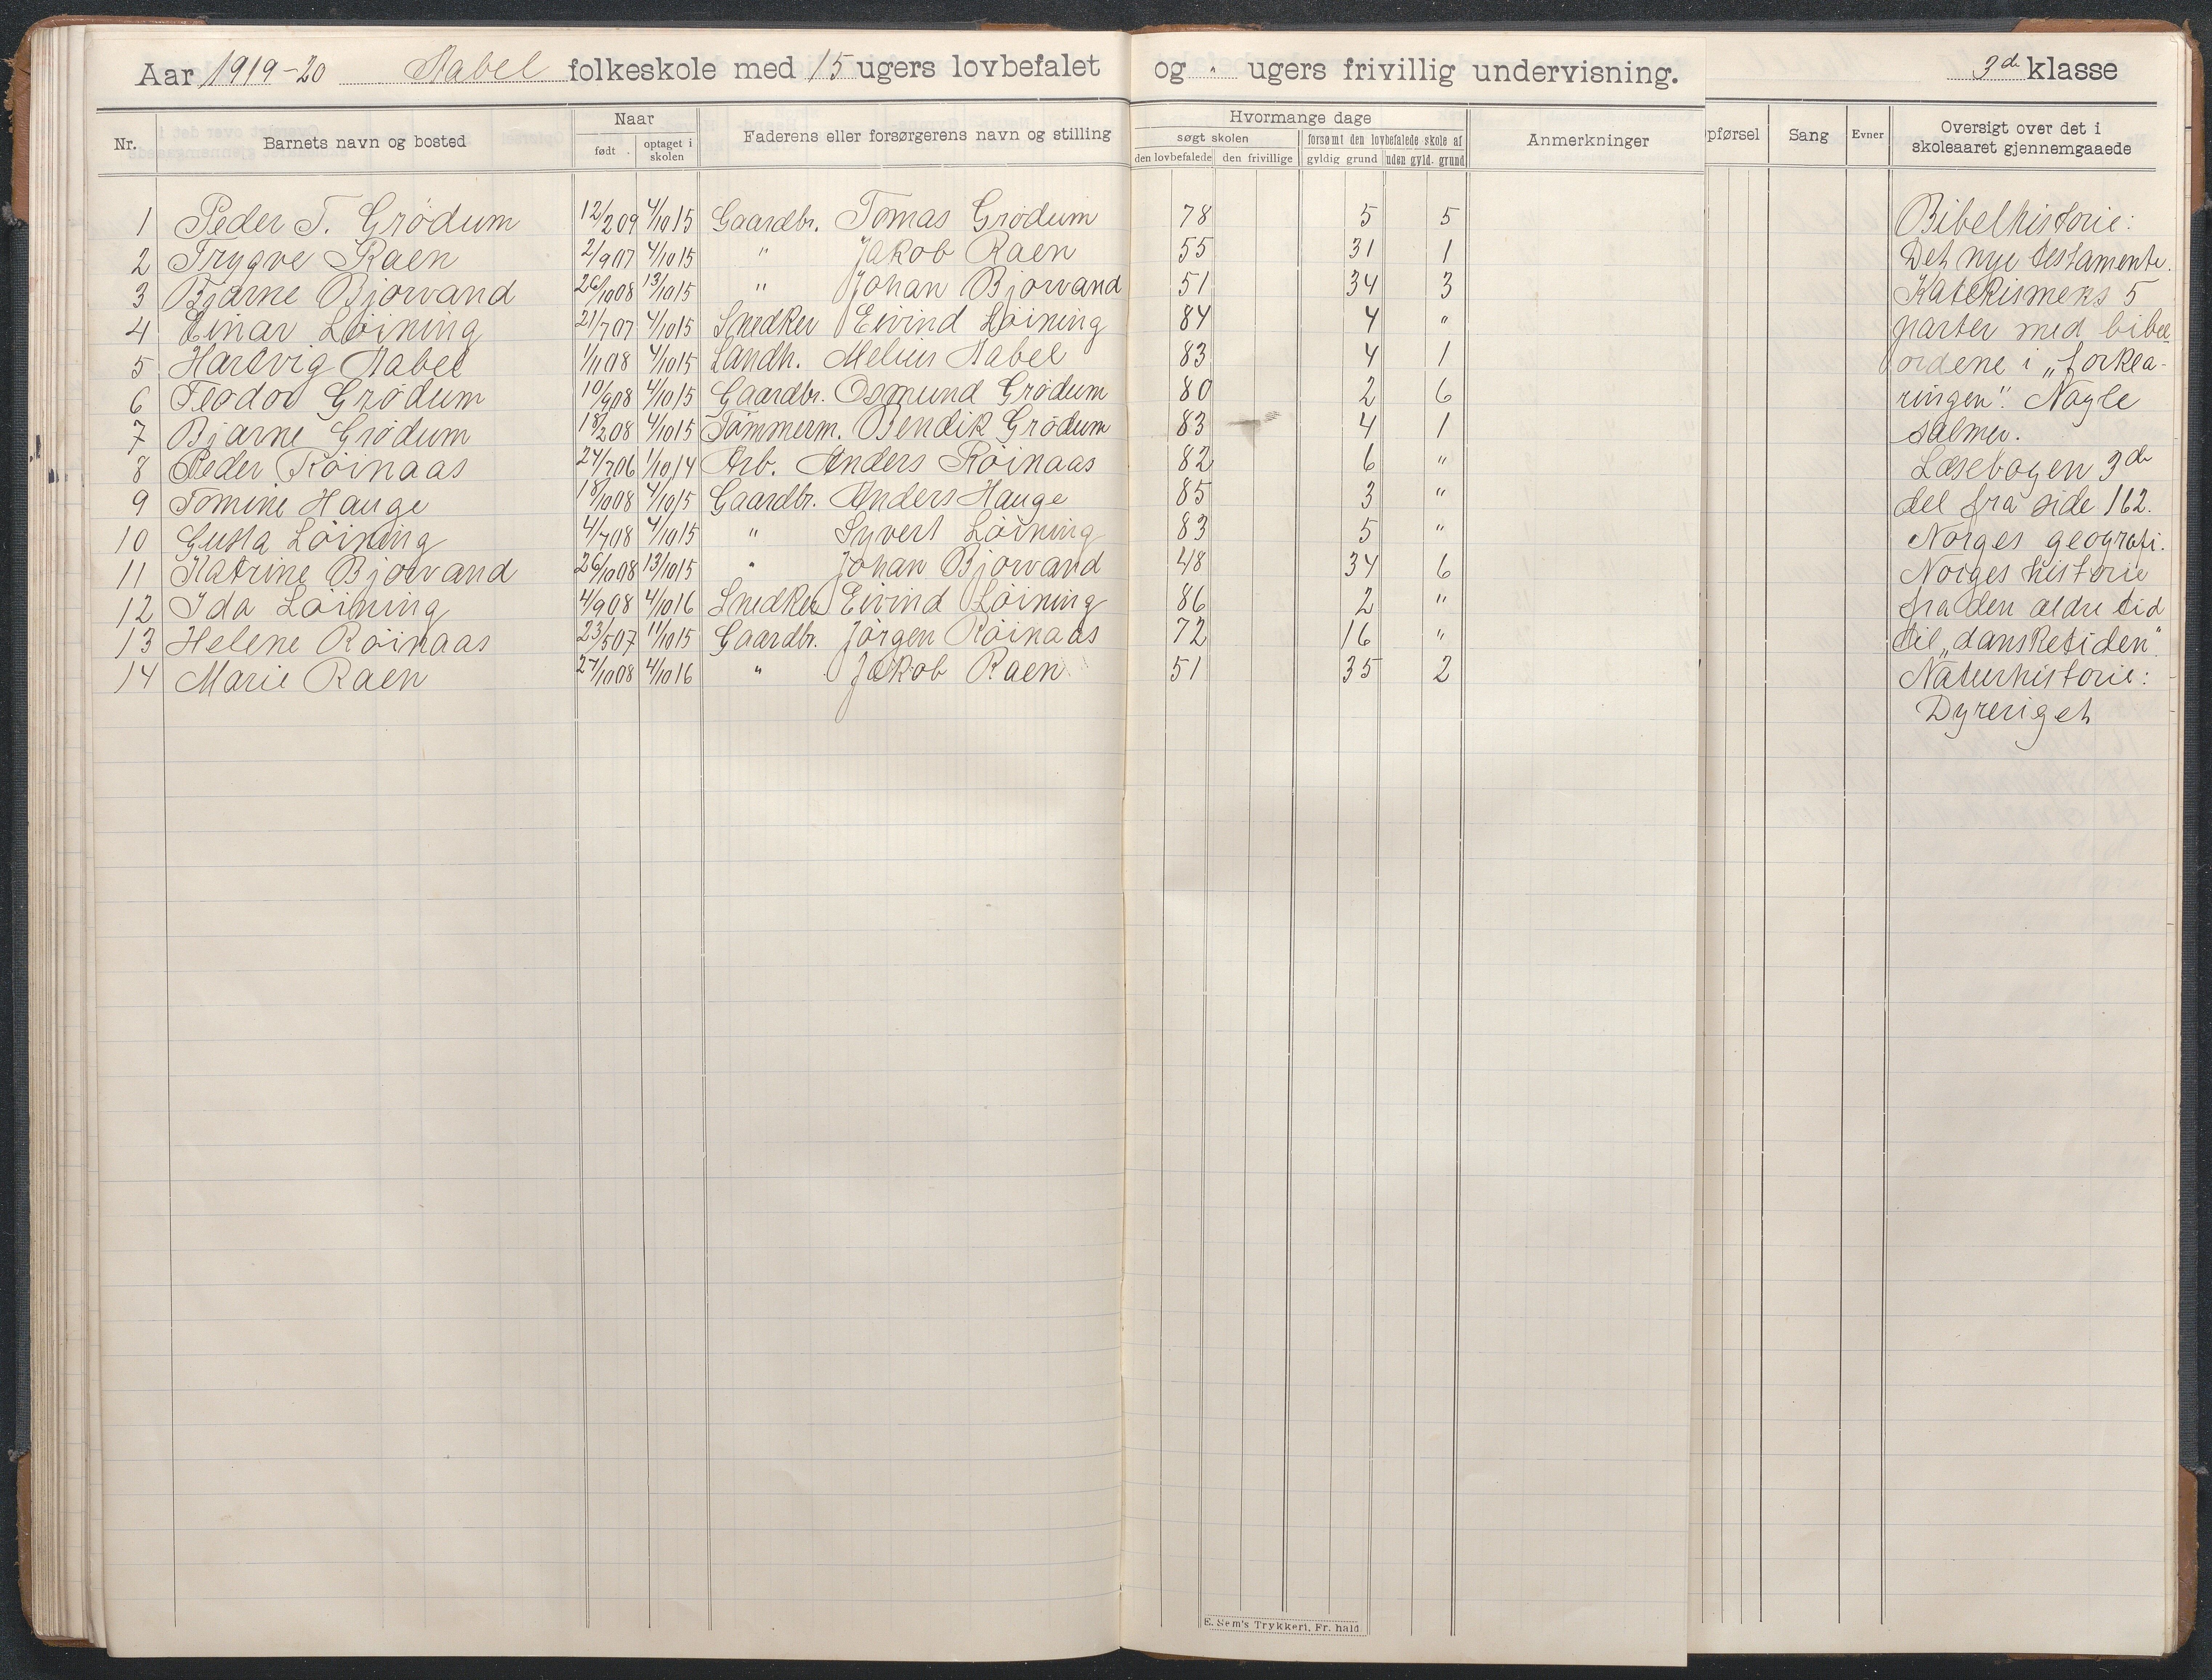 Aar 1919-20 Aabel folkeskole med 15 ugers lovbefalet og " ugers frivillig undervisning. 3de klasse
Nr. Barnets navn og bosted Naar født optaget i skolen Faderens eller forsørgerens navn og stilling Hvormange dage søgt skolen den lovbefalede den frivillige forsømt den lovbefalede skole af gyldig grund uden gyld. grund Anmerkninger pførsel Sang Evner Oversigt over det i skoleaaret gjennemgaaede
1 Peder T. Grödum 12/2 09 4/10 15 Gaardbr. Tomas Grödum 78 5 5
2 Trygve Raen 2/9 07 4/10 15 " Jakob Raen 55 31 1
3 Bjarne Bjorvand 26/10 08 13/10 15 " Johan Bjorvand 51 34 3
4 Einar Löining 21/7 07 4/10 15 Snedker Eivind Löining 84 4 "
5 Hartvig Aabel 1/11 08 4/10 15 Landh. Melius Aabel 83 4 1
6 Teodor Grödum 10/9 08 4/10 15 Gaardbr. Osmund Grödum 80 2 6
7 Bjarne Grödum 18/2 08 4/10 15 Tömmerm. Bendik Grödum 83 4 1
8 Peder Röinaas 24/7 06 1/10 14 Arb. Anders Röinaas 82 6 "
9 Tomine Hauge 18/10 08 4/10 15 Gaardbr. Anders Hauge 85 3 "
10 Gusta Löining 4/7 08 4/10 15 " Syvert Löining 83 5 "
11 Katrine Bjorvand 26/10 08 13/10 15 " Johan Bjorvand 48 34 6
12 Ida Löining 4/9 08 4/10 16 Snedker Eivind Löining 86 2 "
13 Helene Röinaas 23/5 07 11/10 15 Gaardbr. Jörgen Röinaas 72 16 "
14 Marie Raen 27/10 08 4/10 16 " Jakob Raen 51 35 2
Bibelhistorie:
Det nye testamente.
Katekismens 5
parter med bibel
ordene i „forkla-
ringen". Nogle
salmer.
Læsebogen 3de
del fra side 162.
Norges geografi.
Norges historie
fra den ældre tid
til „dansketiden".
Naturhistorie:
Dyreriget
E. Sem's Trykkeri, Fr. hald